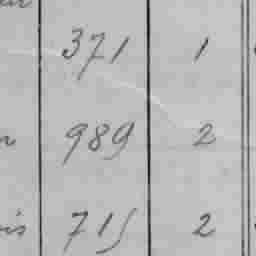 371 1
989 2
is 715 2